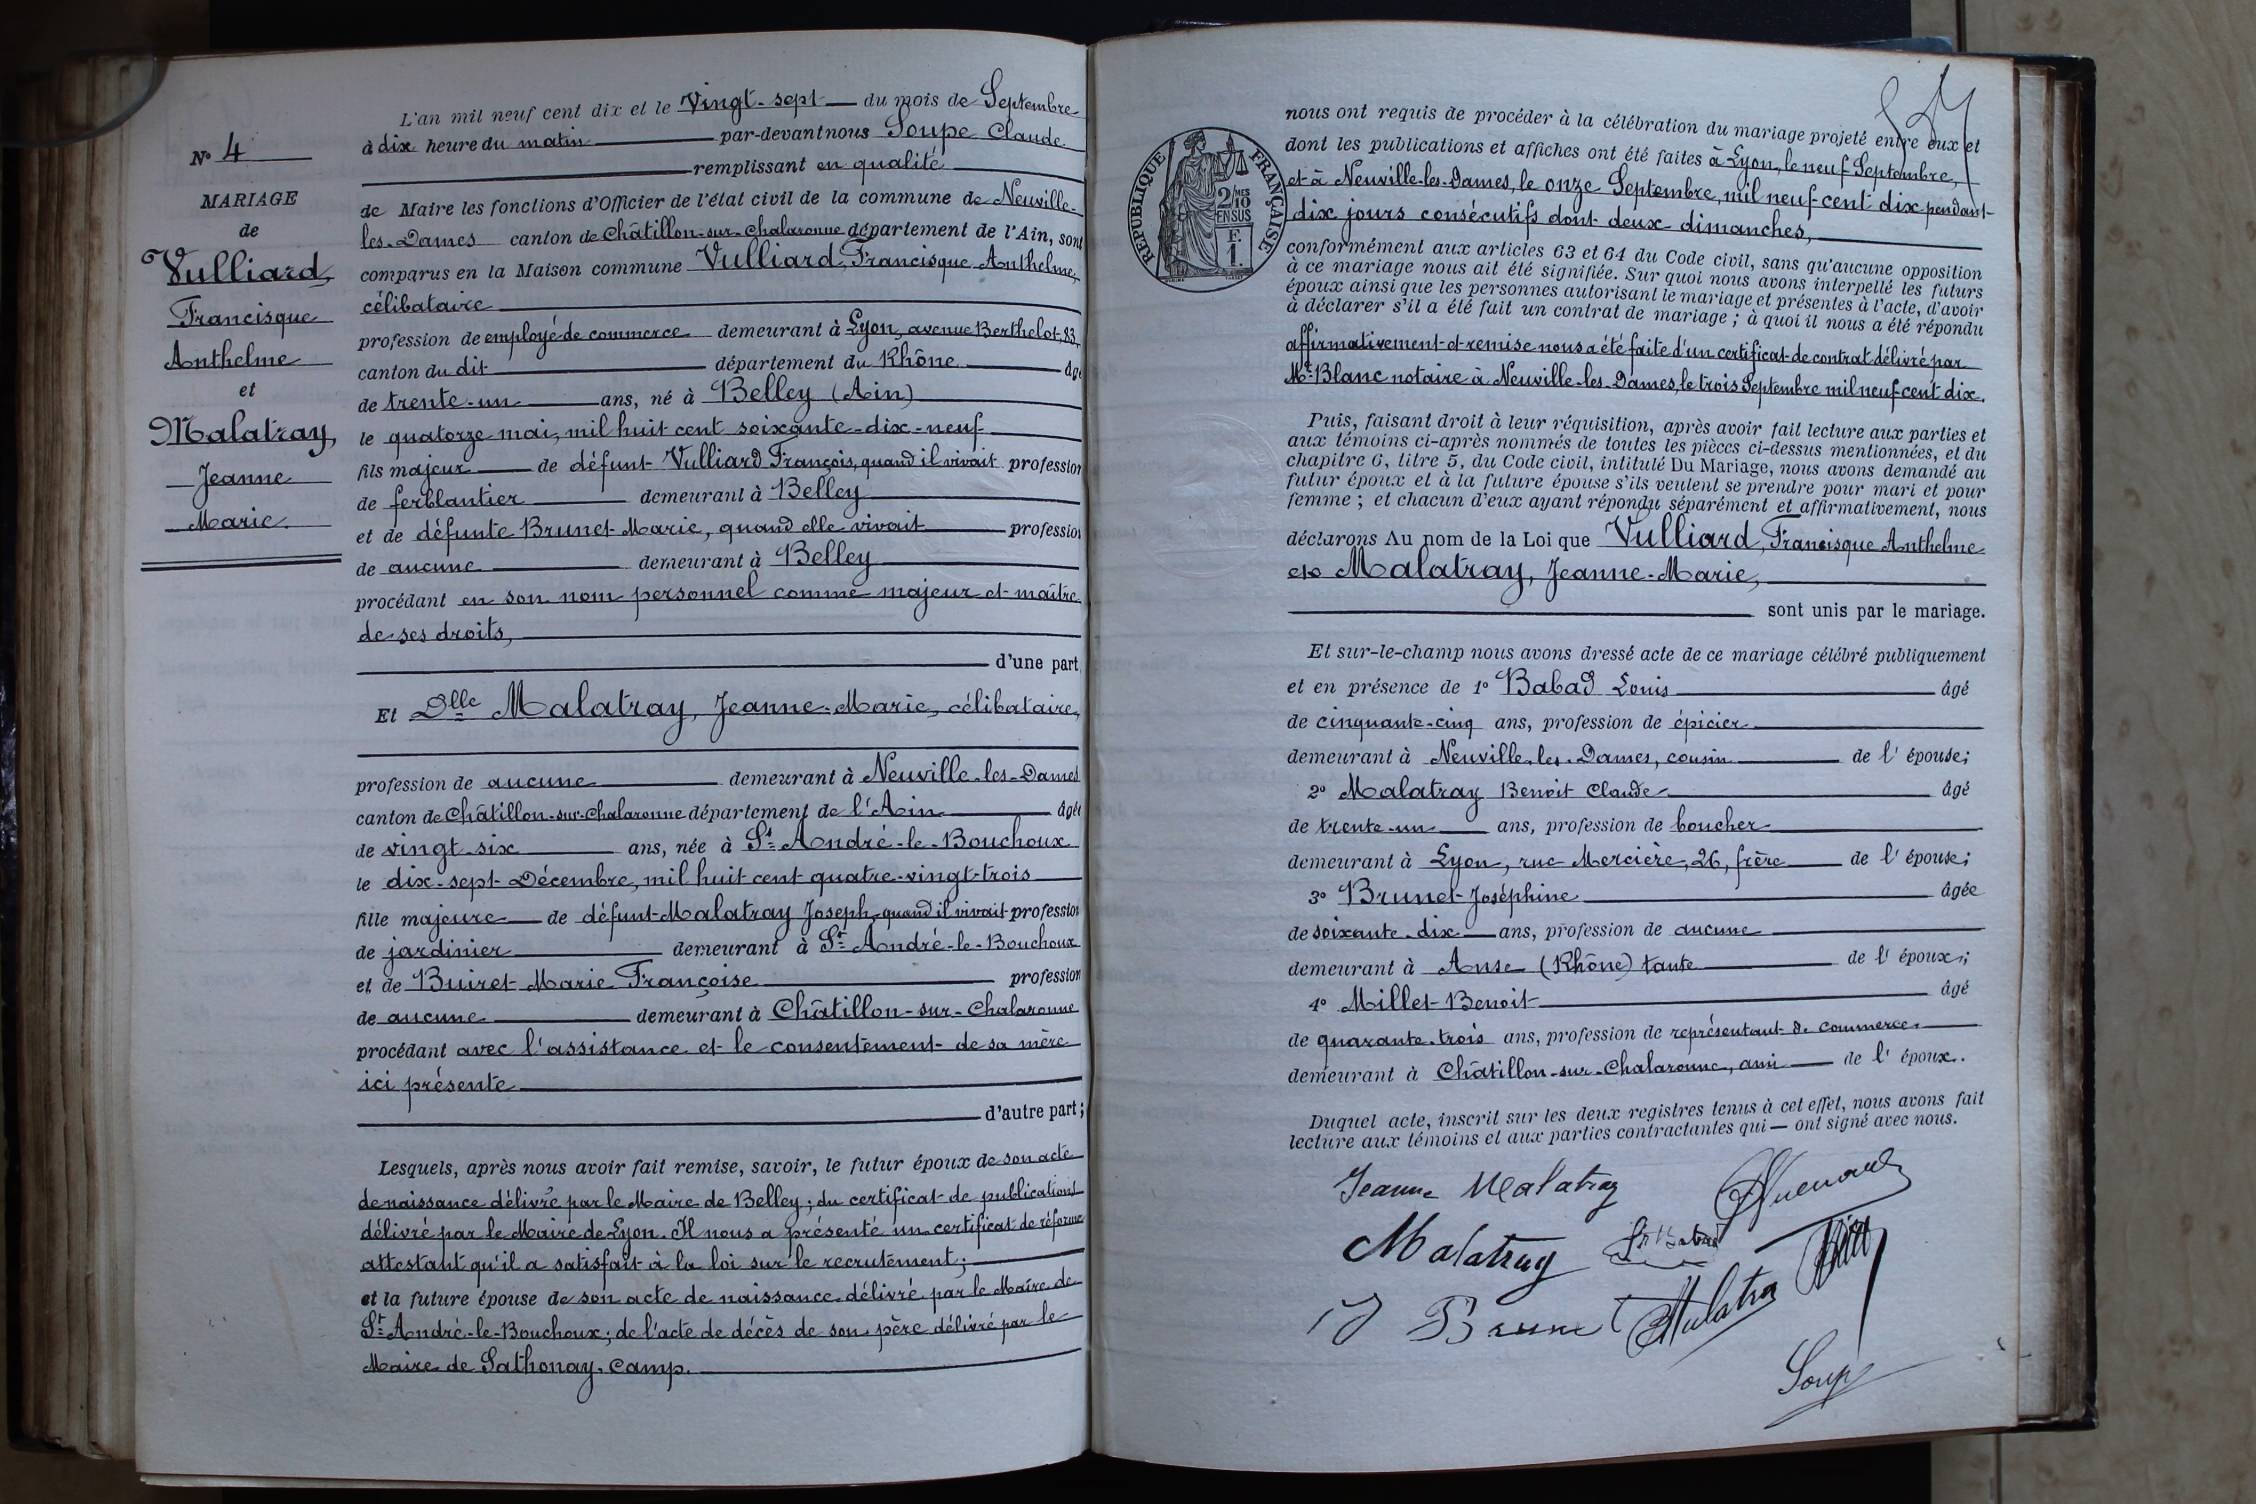 N° 4
MARIAGE
de
Vulliard,
Francisque
Anthelme
et
Malatray,
Jeanne
Marie.
L'an mil neuf cent dix et le Vingt-sept du mois de Septembre
à dix heure du matin par-devant nous Soupe Claude
remplissant en qualité
de Maire les fonctions d'Officier de l'état civil de la commune de Neuville-
les-Dames canton de Châtillon-sur-Chalaronne département de l'Ain, sont
comparus en la Maison commune Vulliard, Francisque Anthelme,
célibataire
profession de employé de commerce demeurant à Lyon, avenue Berthelot, 83,
canton du dit département du Rhône âgé
de trente-un ans, né à Belley (Ain)
le quatorze mai, mil huit cent soixante-dix-neuf
fils majeur de défunt Vulliard François, quand il vivait profession
de ferblantier demeurant à Belley
et de défunte Brunet Marie, quand elle vivait profession
de aucune demeurant à Belley
procédant en son nom personnel comme majeur et maître
de ses droits,
d'une part
Et Dlle Malatray, Jeanne-Marie, célibataire,
profession de aucune demeurant à Neuville-les-Dames
canton de Châtillon-sur-Chalaronne département de l'Ain âgée
de vingt-six ans, née à St André-le-Bouchoux
le dix-sept Décembre, mil huit cent quatre-vingt-trois
fille majeure de défunt Malatray Joseph, quand il vivait profession
de jardinier demeurant à St André-le-Bouchoux
et de Buiret Marie Françoise profession
de aucune demeurant à Châtillon-sur-Chalaronne
procédant avec l'assistance et le consentement de sa mère
ici présente
d'autre part;
Lesquels, après nous avoir fait remise, savoir, le futur époux de son acte
de naissance délivré par le Maire de Belley; du certificat de publications
délivré par le Maire de Lyon. Il nous a présenté un certificat de réforme
attestant qu'il a satisfait à la loi sur le recrutement;
et la future épouse de son acte de naissance délivré par le Maire de
St André-le-Bouchoux; de l'acte de décès de son père délivré par le
Maire de Sathonay, Camp.
RÉPUBLIQUE FRANÇAISE
2/10 MES
EN SUS
F.
1.
nous ont requis de procéder à la célébration du mariage projeté entre eux et
dont les publications et affiches ont été faites à Lyon, le neuf Septembre,
et à Neuville-les-Dames, le onze Septembre, mil neuf cent dix pendant
dix jours consécutifs dont deux dimanches,
conformément aux articles 63 et 64 du Code civil, sans qu'aucune opposition
à ce mariage nous ait été signifiée. Sur quoi nous avons interpellé les futurs
époux ainsi que les personnes autorisant le mariage et présentes à l'acte, d'avoir
à déclarer s'il a été fait un contrat de mariage; à quoi il nous a été répondu
affirmativement et remise nous a été faite d'un certificat de contrat délivré par
Mt Blanc notaire à Neuville-les-Dames, le trois Septembre mil neuf cent dix.
Puis, faisant droit à leur réquisition, après avoir fait lecture aux parties et
aux témoins ci-après nommés de toutes les pièces ci-dessus mentionnées, et du
chapitre 6, titre 5, du Code civil, intitulé Du Mariage, nous avons demandé au
futur époux et à la future épouse s'ils veulent se prendre pour mari et pour
femme; et chacun d'eux ayant répondu séparément et affirmativement, nous
déclarons Au nom de la Loi que Vulliard, Francisque Anthelme
et Malatray, Jeanne-Marie,
sont unis par le mariage.
Et sur-le-champ nous avons dressé acte de ce mariage célébré publiquement
et en présence de 1° Babad Louis âgé
de cinquante-cinq ans, profession de épicier
demeurant à Neuville-les-Dames, cousin de l'épouse;
2° Malatray Benoit Claude âgé
de trente-un ans, profession de boucher
demeurant à Lyon, rue Mercière, 26, frère de l'épouse;
3° Brunet Joséphine âgée
de soixante-dix ans, profession de aucune
demeurant à Anse (Rhône) tante de l'époux;
4° Millet Benoit âgé
de quarante-trois ans, profession de représentant de commerce
demeurant à Châtillon-sur-Chalaronne, ami de l'époux.
Duquel acte, inscrit sur les deux registres tenus à cet effet, nous avons fait
lecture aux témoins et aux parties contractantes qui — ont signé avec nous.
Jeanne Malatray
Malatray
Brunet Malatra
Soupe